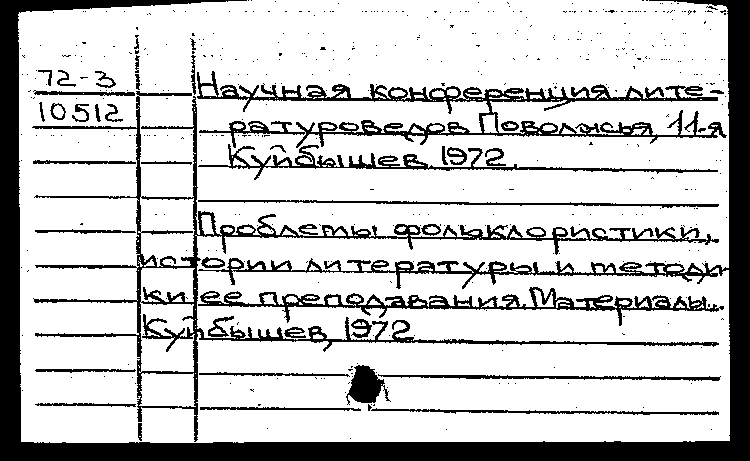 72-3
10512
Научная конференция лите-
ратуроведов Поволжья, 11-я
Куйбышев, 1972.
Проблемы фольклористики,
истории литературы и методи-
ки ее преподавания. Материалы..
Куйбышев, 1972